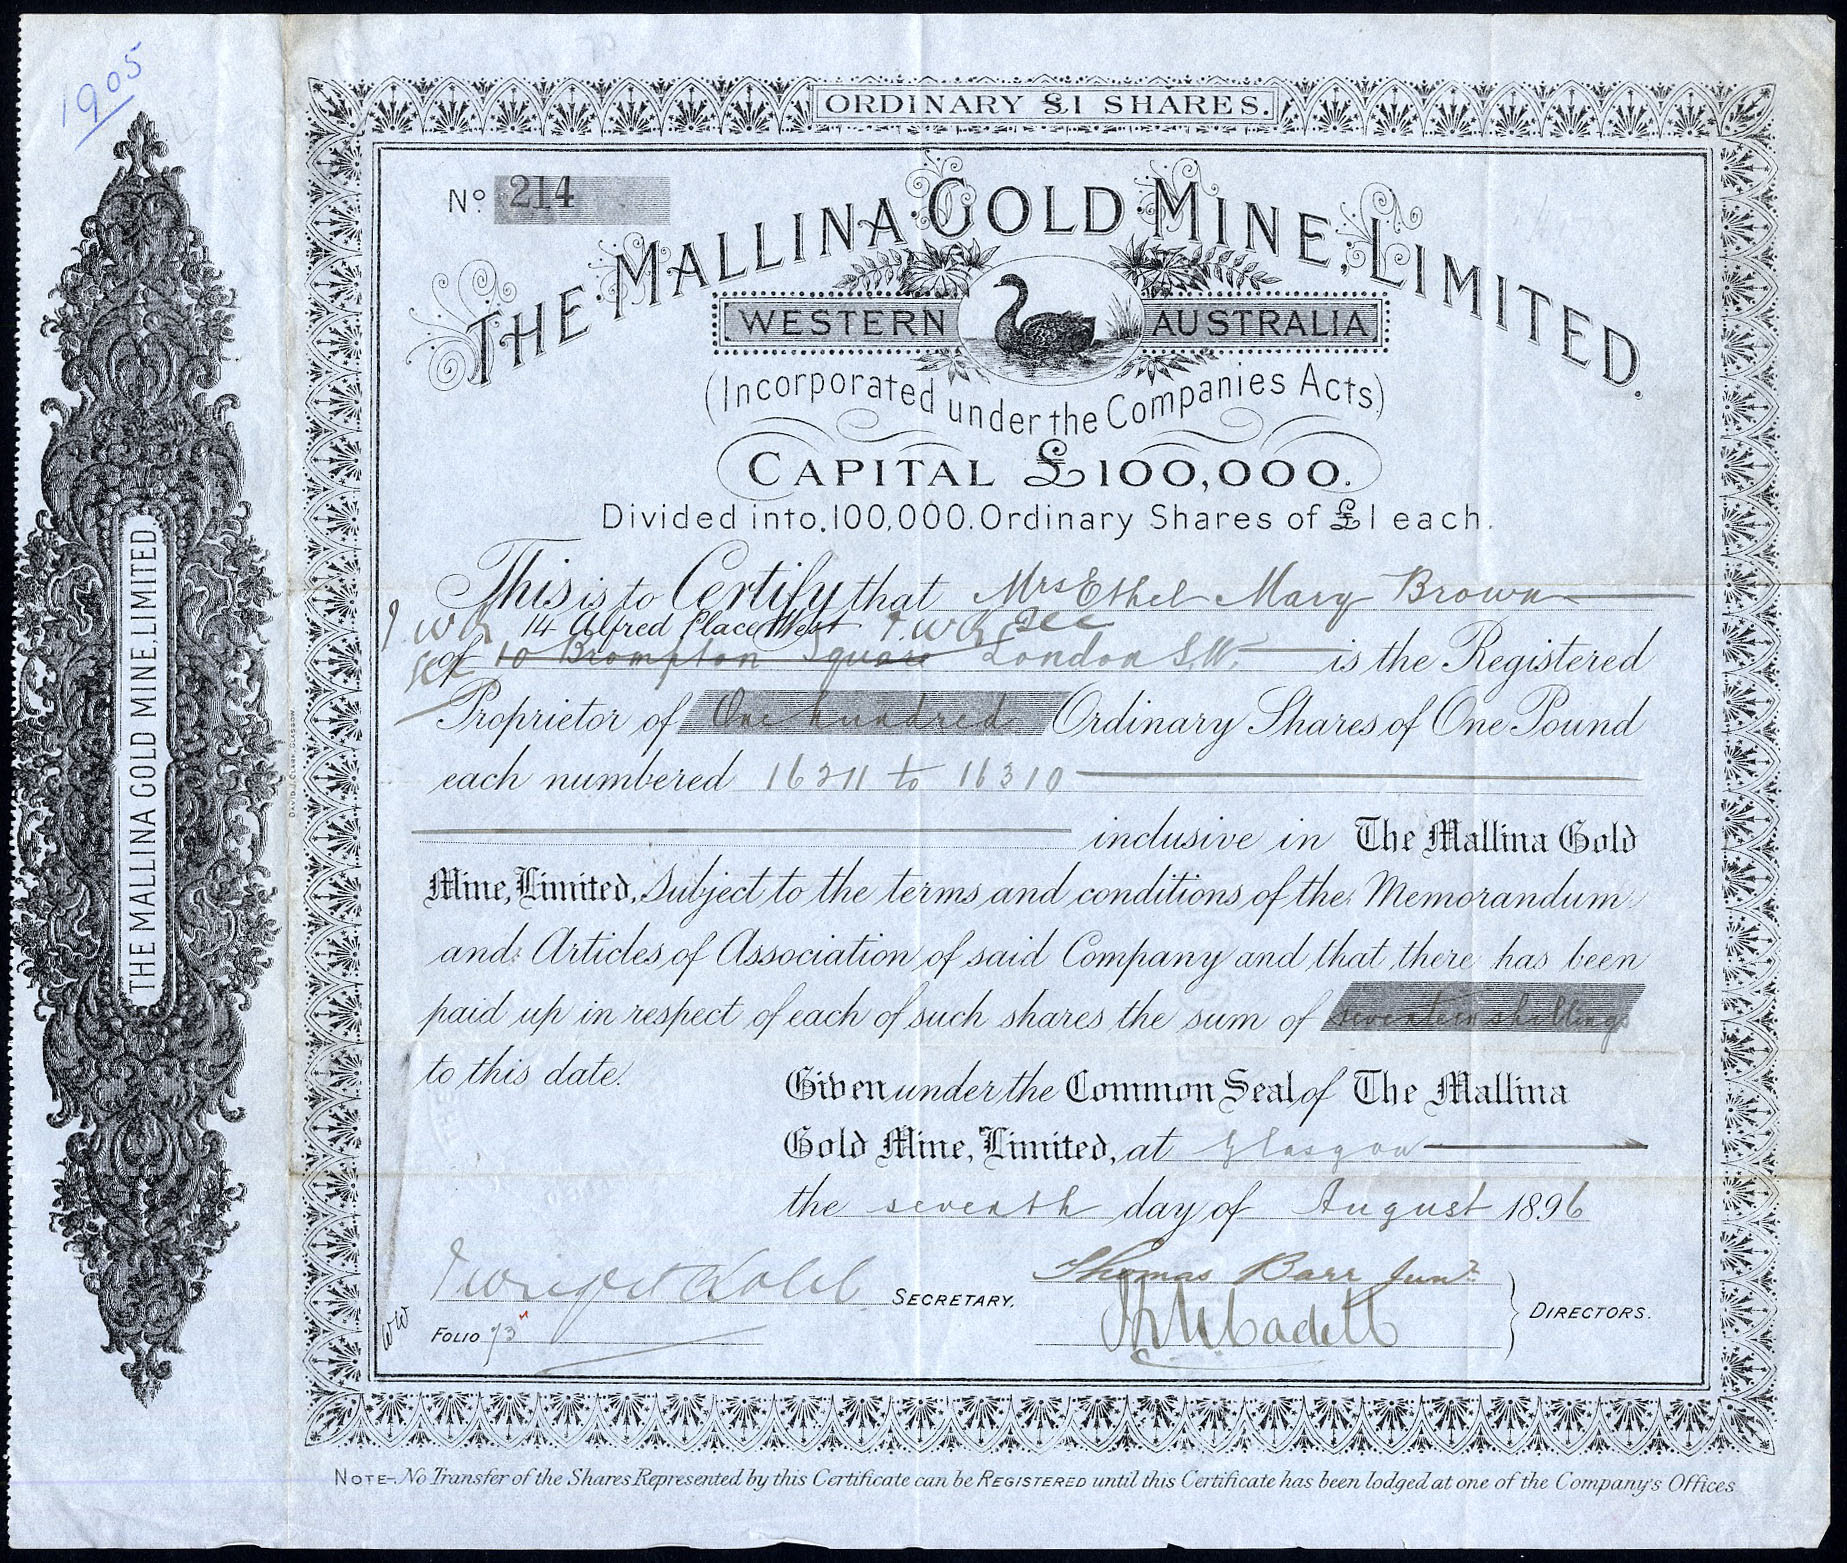 1905
THE MALLINA GOLD MINE, LIMITED.
DAVID J. CLARK, GLASGOW
ORDINARY £1 SHARES.
No. 214
THE MALLINA GOLD MINE, LIMITED.
WESTERN AUSTRALIA
(Incorporated under the Companies Acts)
CAPITAL £100,000.
Divided into 100,000 Ordinary Shares of £1 each.
This is to Certify that Mrs Ethel Mary Brown
14 Alfred Place West
of 10 Brompton Square London S.W. is the Registered
Proprietor of One hundred Ordinary Shares of One Pound
each numbered 16211 to 16310
inclusive in The Mallina Gold
Mine, Limited, Subject to the terms and conditions of the Memorandum
and Articles of Association of said Company and that there has been
paid up in respect of each of such shares the sum of seventeen shillings
to this date.
Given under the Common Seal of The Mallina
Gold Mine, Limited, at Glasgow
the seventh day of August 1896
SECRETARY.
Thomas Barr Junr
DIRECTORS.
WW
FOLIO 73
NOTE—No Transfer of the Shares Represented by this Certificate can be REGISTERED until this Certificate has been lodged at one of the Company's Offices